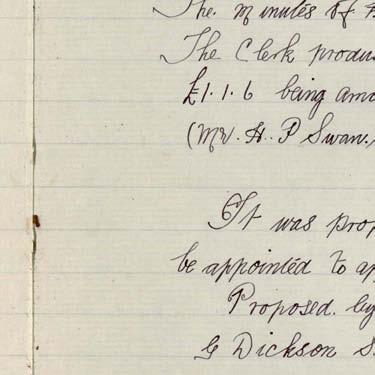 The Minutes of
The Clerk produ
£1. 1. 6 being amo
(Mr. H. P Swan.
It was prop
be appointed to ap
Proposed. by
G Dickson S